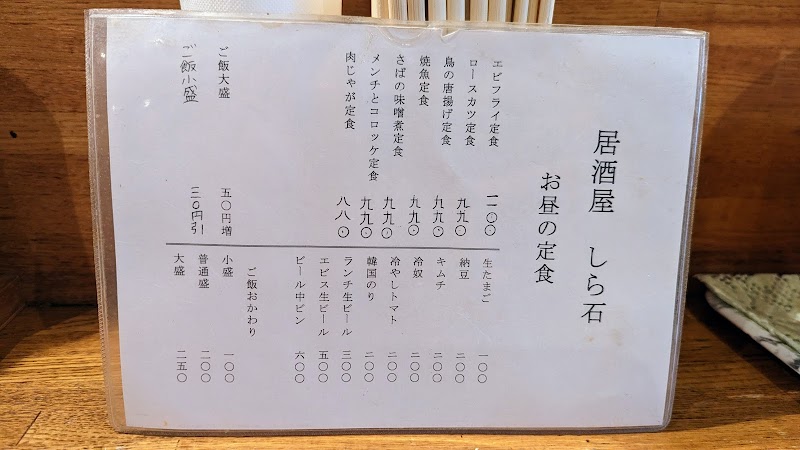 居酒屋 しら石
お昼の定食
エビフライ定食 一一〇〇
ロースカツ定食 九九〇
鳥の唐揚げ定食 九九〇
焼魚定食 九九〇
さばの味噌煮定食 九九〇
メンチとコロッケ定食 九九〇
肉じゃが定食 八八〇
ご飯大盛 五〇円増
ご飯小盛 三〇円引
生たまご 一〇〇
納豆 二〇〇
キムチ 二〇〇
冷奴 二〇〇
冷やしトマト 二〇〇
韓国のり 二〇〇
ランチ生ビール 三〇〇
エビス生ビール 五〇〇
ビール中ビン 六〇〇
ご飯おかわり
小盛 一〇〇
普通盛 二〇〇
大盛 二五〇